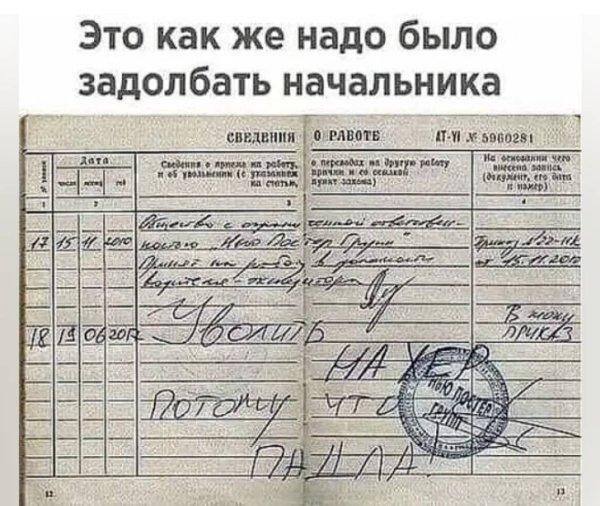 Это как же надо было
задолбать начальника
СВЕДЕНИЯ О РАБОТЕ АТ-VI № 5960281
Дата
Сведения о приеме на работу, о переводах на другую работу
и об увольнении (с указанием причин и со ссылкой
на статью, пункт закона)
На основании чего
внесена запись
(документ, его дата
и номер)
число месяц год
1 2 3 4
Общество с ограниченной ответствен-
17 15 11 2010 ностью „Нью Постер Групп" Приказ №22-НК
Принят на работу в должности от 15.11.2010
водителя-экспедитора
В жопу
18 19 06 201 УВОЛИТЬ ПРИКАЗ
НАХЕР
ПОТОМУ ЧТО
ПАДЛА!
НЬЮ ПОСТЕР
ГРУПП
12 13